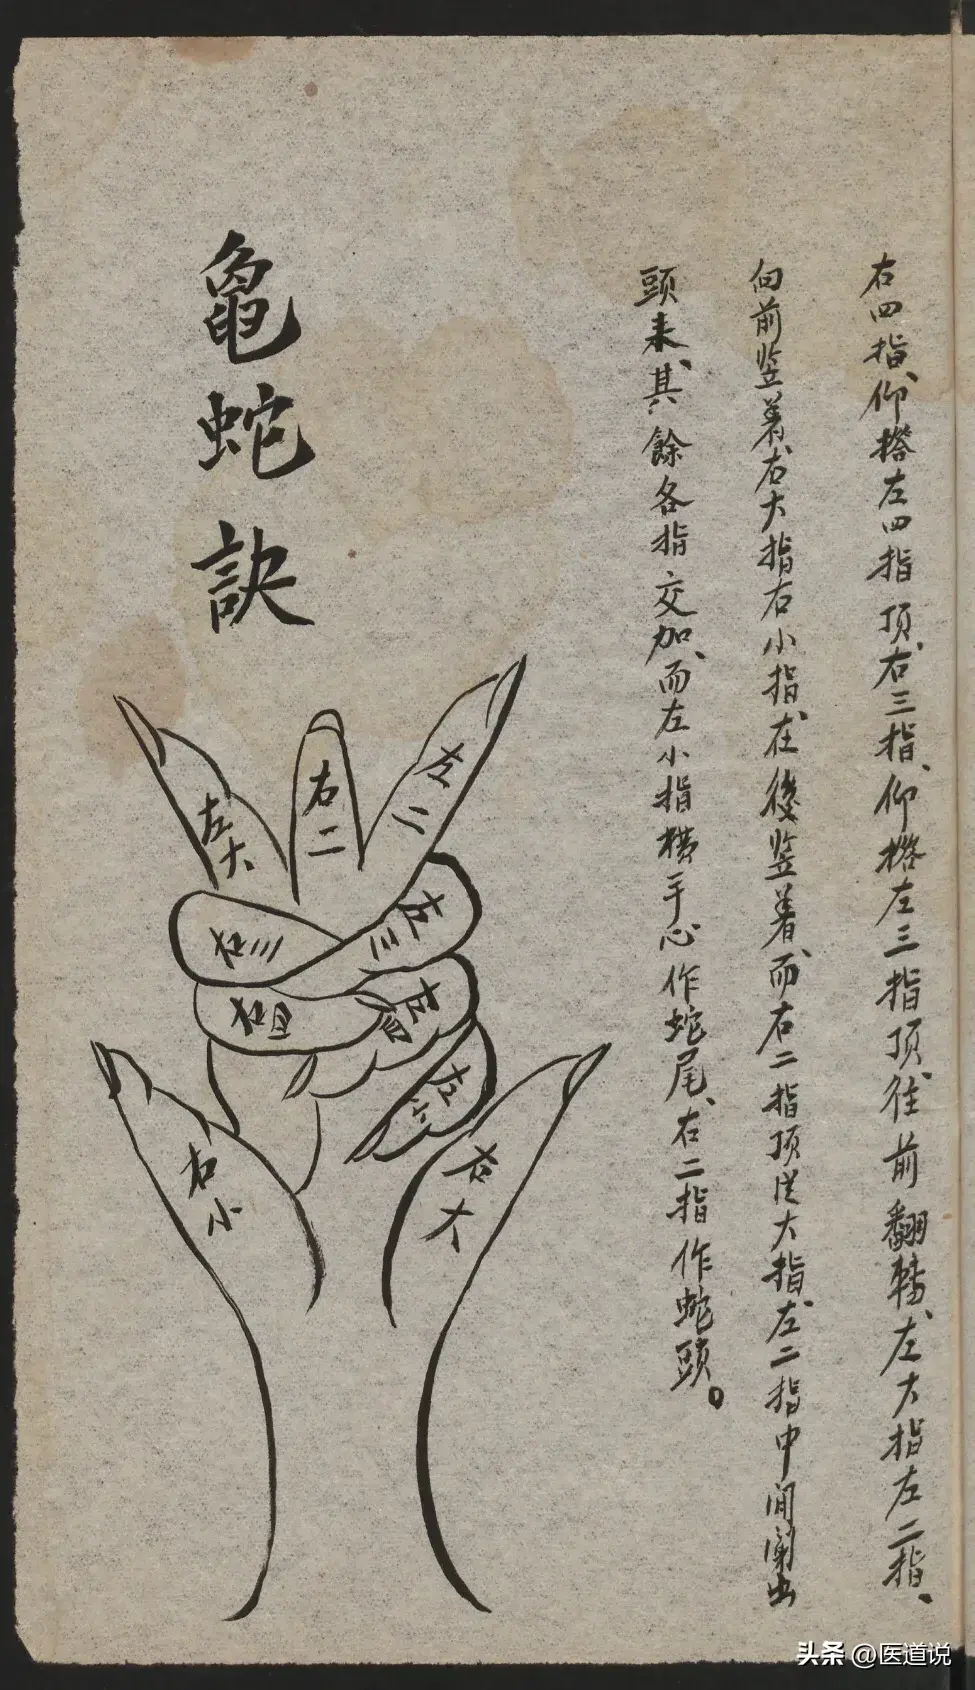 右四指、仰搭左四指顶、右三指、仰搭左三指顶、往前翻轉、左大指左二指、
向前竖着、右大指右小指、在後竖着、而右二指顶從大指、左二指中间闖出
頭来、其餘各指交加、而左小指横手心作蛇尾、右二指作蛇頭。
龜蛇訣
左大
右二
左二
右三
左三
右四
左四
左小
右小
右大
头条 @医道说